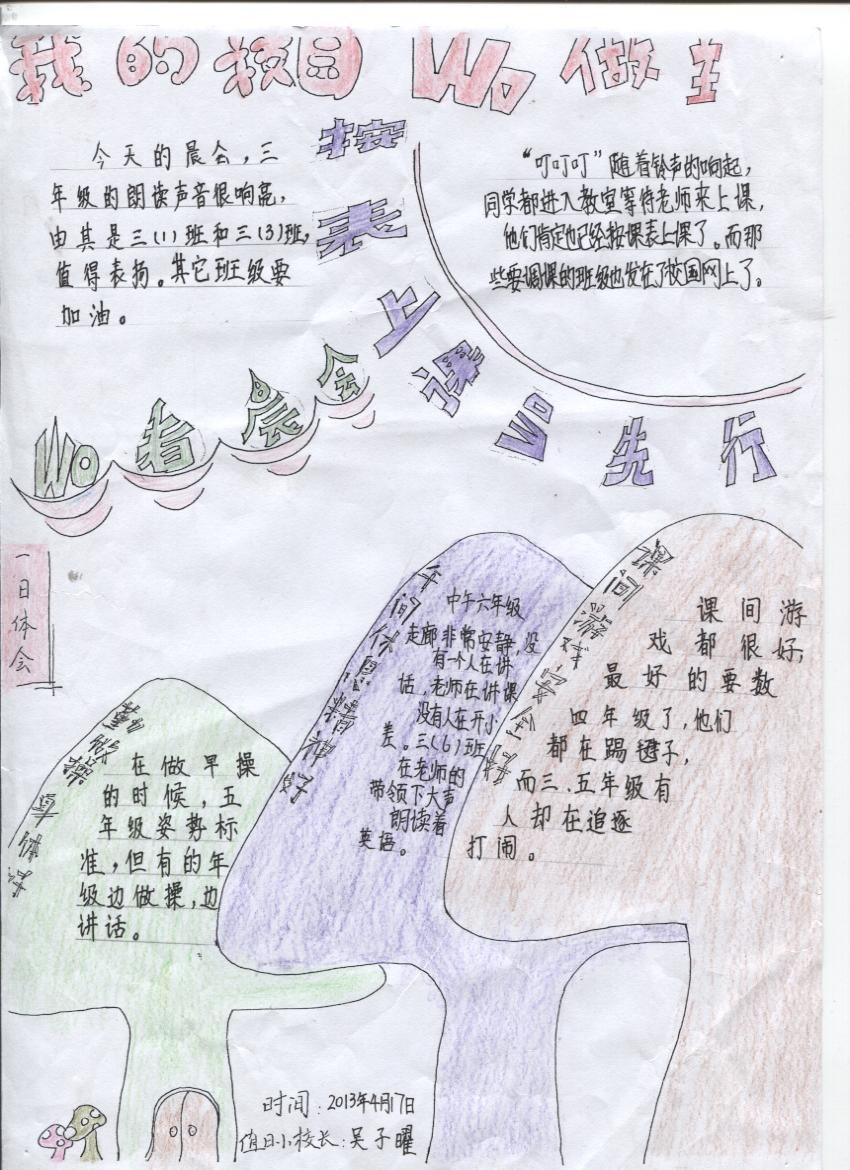 我的校园 Wo 做主
今天的晨会，三
年级的朗读声音很响亮，
由其是三(1)班和三(3)班，
值得表扬。其它班级要
加油。
按表上课 Wo 先行
“叮叮叮”随着铃声的响起，
同学都进入教室等待老师来上课，
他们肯定也已经按课表上课了。而那
些要调课的班级也发在了校园网上了。
Wo 看晨会
一日体会
勤做操 身体好
在做早操
的时候，五
年级姿势标
准，但有的年
级边做操，边
讲话。
午间休息精神好
中午六年级
走廊非常安静，没
有一个人在讲
话，老师在讲课
没有人在开小
差。三(6)班
在老师的
带领下大声
朗读着
英语。
课间游戏安全
课间游
戏都很好，
最好的要数
四年级了，他们
都在踢毽子，
而三、五年级有
人却在追逐
打闹。
时间：2013年4月17日
值日小校长：吴子曜